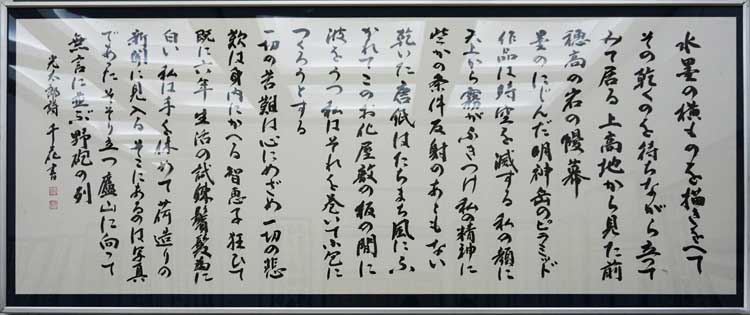 水墨の横ものを描きをへて
その乾くのを待ちながら立つて
みて居る 上高地から見た前
穂高の岩の幔幕
墨のにじんだ明神岳のピラミッド
作品は時空を滅する 私の顔に
天上から霧がふきつけ 私の精神に
些かの条件反射のあともない
乾いた唐紙はたちまち風にふ
かれてこのお化屋敷の板の間に
波をうつ 私はそれを巻いて小包に
つくろうとする
一切の苦難は心にめざめ 一切の悲
歎は身内にかへる 智恵子狂ひて
既に六年 生活の試錬鬢髪為に
白い 私は手を休めて 荷造りの
新聞に見入る そこにあるのは写真
であつた そそり立つ廬山に向つて
無言に並ぶ野砲の列
光太郎詩 書